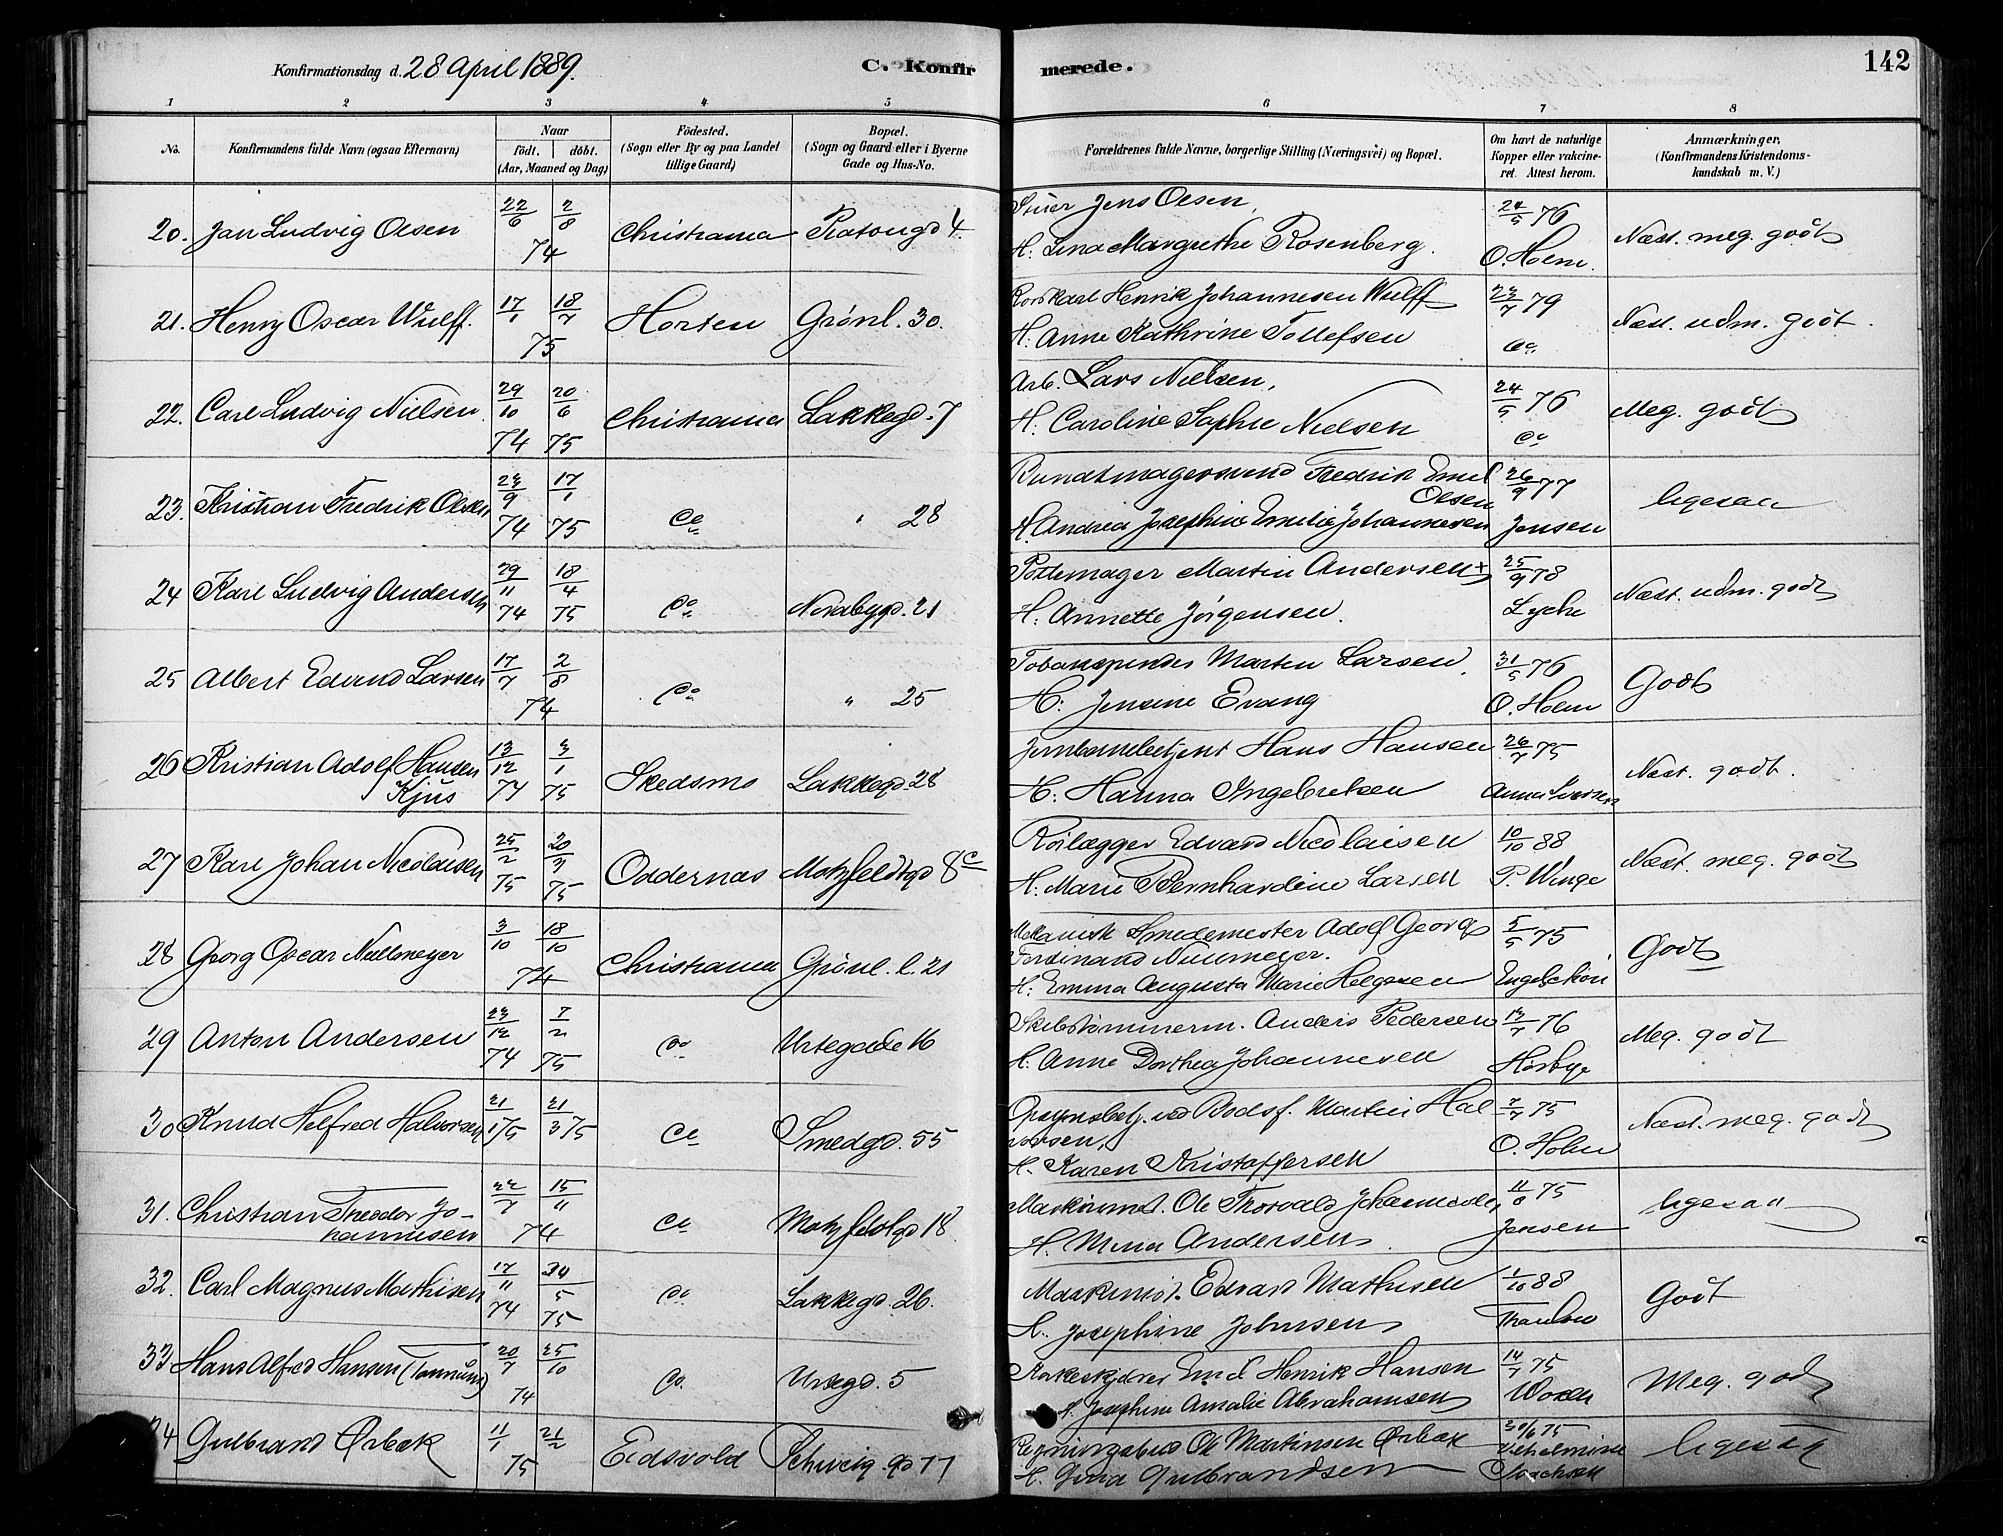 Konfirmationsdag d. 28 April 1889.
C. Konfirmerede.
142
1 2 3 4 5 6 7 8
No.
Konfirmandens fulde Navn (ogsaa Efternavn)
Naar
födt. döbt.
(Aar, Maaned og Dag)
Födested.
(Sogn eller By og paa Landet
tillige Gaard)
Bopæl.
(Sogn og Gaard eller i Byerne
Gade og Hus-No.
Forældrenes fulde Navne, borgerlige Stilling (Næringsvei) og Bopæl.
Om havt de naturlige
Kopper eller vakcine-
ret. Attest herom.
Anmærkninger.
(Konfirmandens Kristendoms-
kundskab m. V.)
20. Jan Ludvig Olsen 22/6 2/8 74 Christiania 4.
Jens Olsen,
H. Lina Margrethe Rosenberg.
24/5 76
O. Holm.
Næst. meg. godt
21. Henry Oscar Wulff. 17/1 18/7 75 Horten Grönl. 30.
Henrik Johannesen Wulff
H. Anne Kathrine Tollefsen
23/7 79
Do
Næst. udm. godt.
22. Carl Ludvig Nielsen 29/10 74 20/6 75 Christiania Lakkegd. 7
Arb. Lars Nielsen,
H. Caroline Sophie Nielsen
24/5 76
Do
Meg. godt
23. Kristian Fredrik Olsen 23/9 74 17/1 75 Do " 28
Bundtmagersvend Fredrik Emil
Olsen
H. Andrea Josephine Emilie Johannesen
26/9 77
Jensen
ligesaa
24 Karl Ludvig Andersen 29/11 74 18/4 75 Do Nordbygd. 21
Pottemager Martin Andersen +
H. Annette Jörgensen.
25/9 78
Lyche
Næst. udm. godt
25 Albert Edvard Larsen 17/7 2/8 74 Do " 25
Tobakspinder Martin Larsen,
H: Jensine Evang
31/5 76
O. Holm
Godt
26 Kristian Adolf Hansen
Kjus
13/12 74 3/1 75 Skedsmo Lakkegd. 28
Jernbanebetjent Hans Hansen
H: Hanna Ingebretsen
26/7 75
Anna Iversen
Næst. godt.
27 Karl Johan Nicolaisen 25/2 75 20/7 75 Oddernæs Motzfeldtgd 8 c
Rörlægger Edvard Nicolaisen
H. Marie Bernhardine Larsen
10/10 88
P. Winge
Næst. meg. godt
28 Georg Oscar Nullmeyer 3/10 18/10 74 Christiania Grönl. l. 21
Mekanisk Smedemester Adolf Georg
Ferdinand Nullmeyer.
H: Emma Augusta Marie Helgesen
5/5 75
Engelschiön
Godt
29 Anton Andersen 23/12 74 7/2 75 Do Urtegade 16
Skibstömmerm. Anders Pedersen
H. Anne Dorthea Johannesen
13/7 76
Hörbye
Meg. godt
30 Knud Helfred Halvorsen 21/1 75 21/3 75 Do Smedgd. 55
Opsynsbetj. ved Bodsf. Martin Hal
vorsen,
H. Karen Kristoffersen
7/7 75
O. Holm
Næst. meg. godt
31. Christian Theodor Jo-
hannesen
22/7 15/11 74 Do Motzfeldtgd 18.
Maskinmst. Ole Thorvald Johannesen,
H. Mina Andersen
11/8 75
Jensen
ligesaa
32. Carl Magnus Mathisen 17/11 74 34/5 75 Do Lakkegd. 26.
Maskinist. Edvard Mathisen
H. Josephine Johnsen
1/10 88
Thaulow
Godt
33 Hans Alfred Hansen 20/7 25/10 74 Do Urtegd. 5
Emil Henrik Hansen
H. Josephine Amalie Abrahamsen
14/7 75
Meg. godt
34 Gulbrand Ørbæk 11/1 21/2 75 Eidsvold Schweig.gd 11
Ole Martinsen Ørbæk
H. Gina Gulbrandsen
30/6 75
Vilhelmine
Isachsen
ligesaa